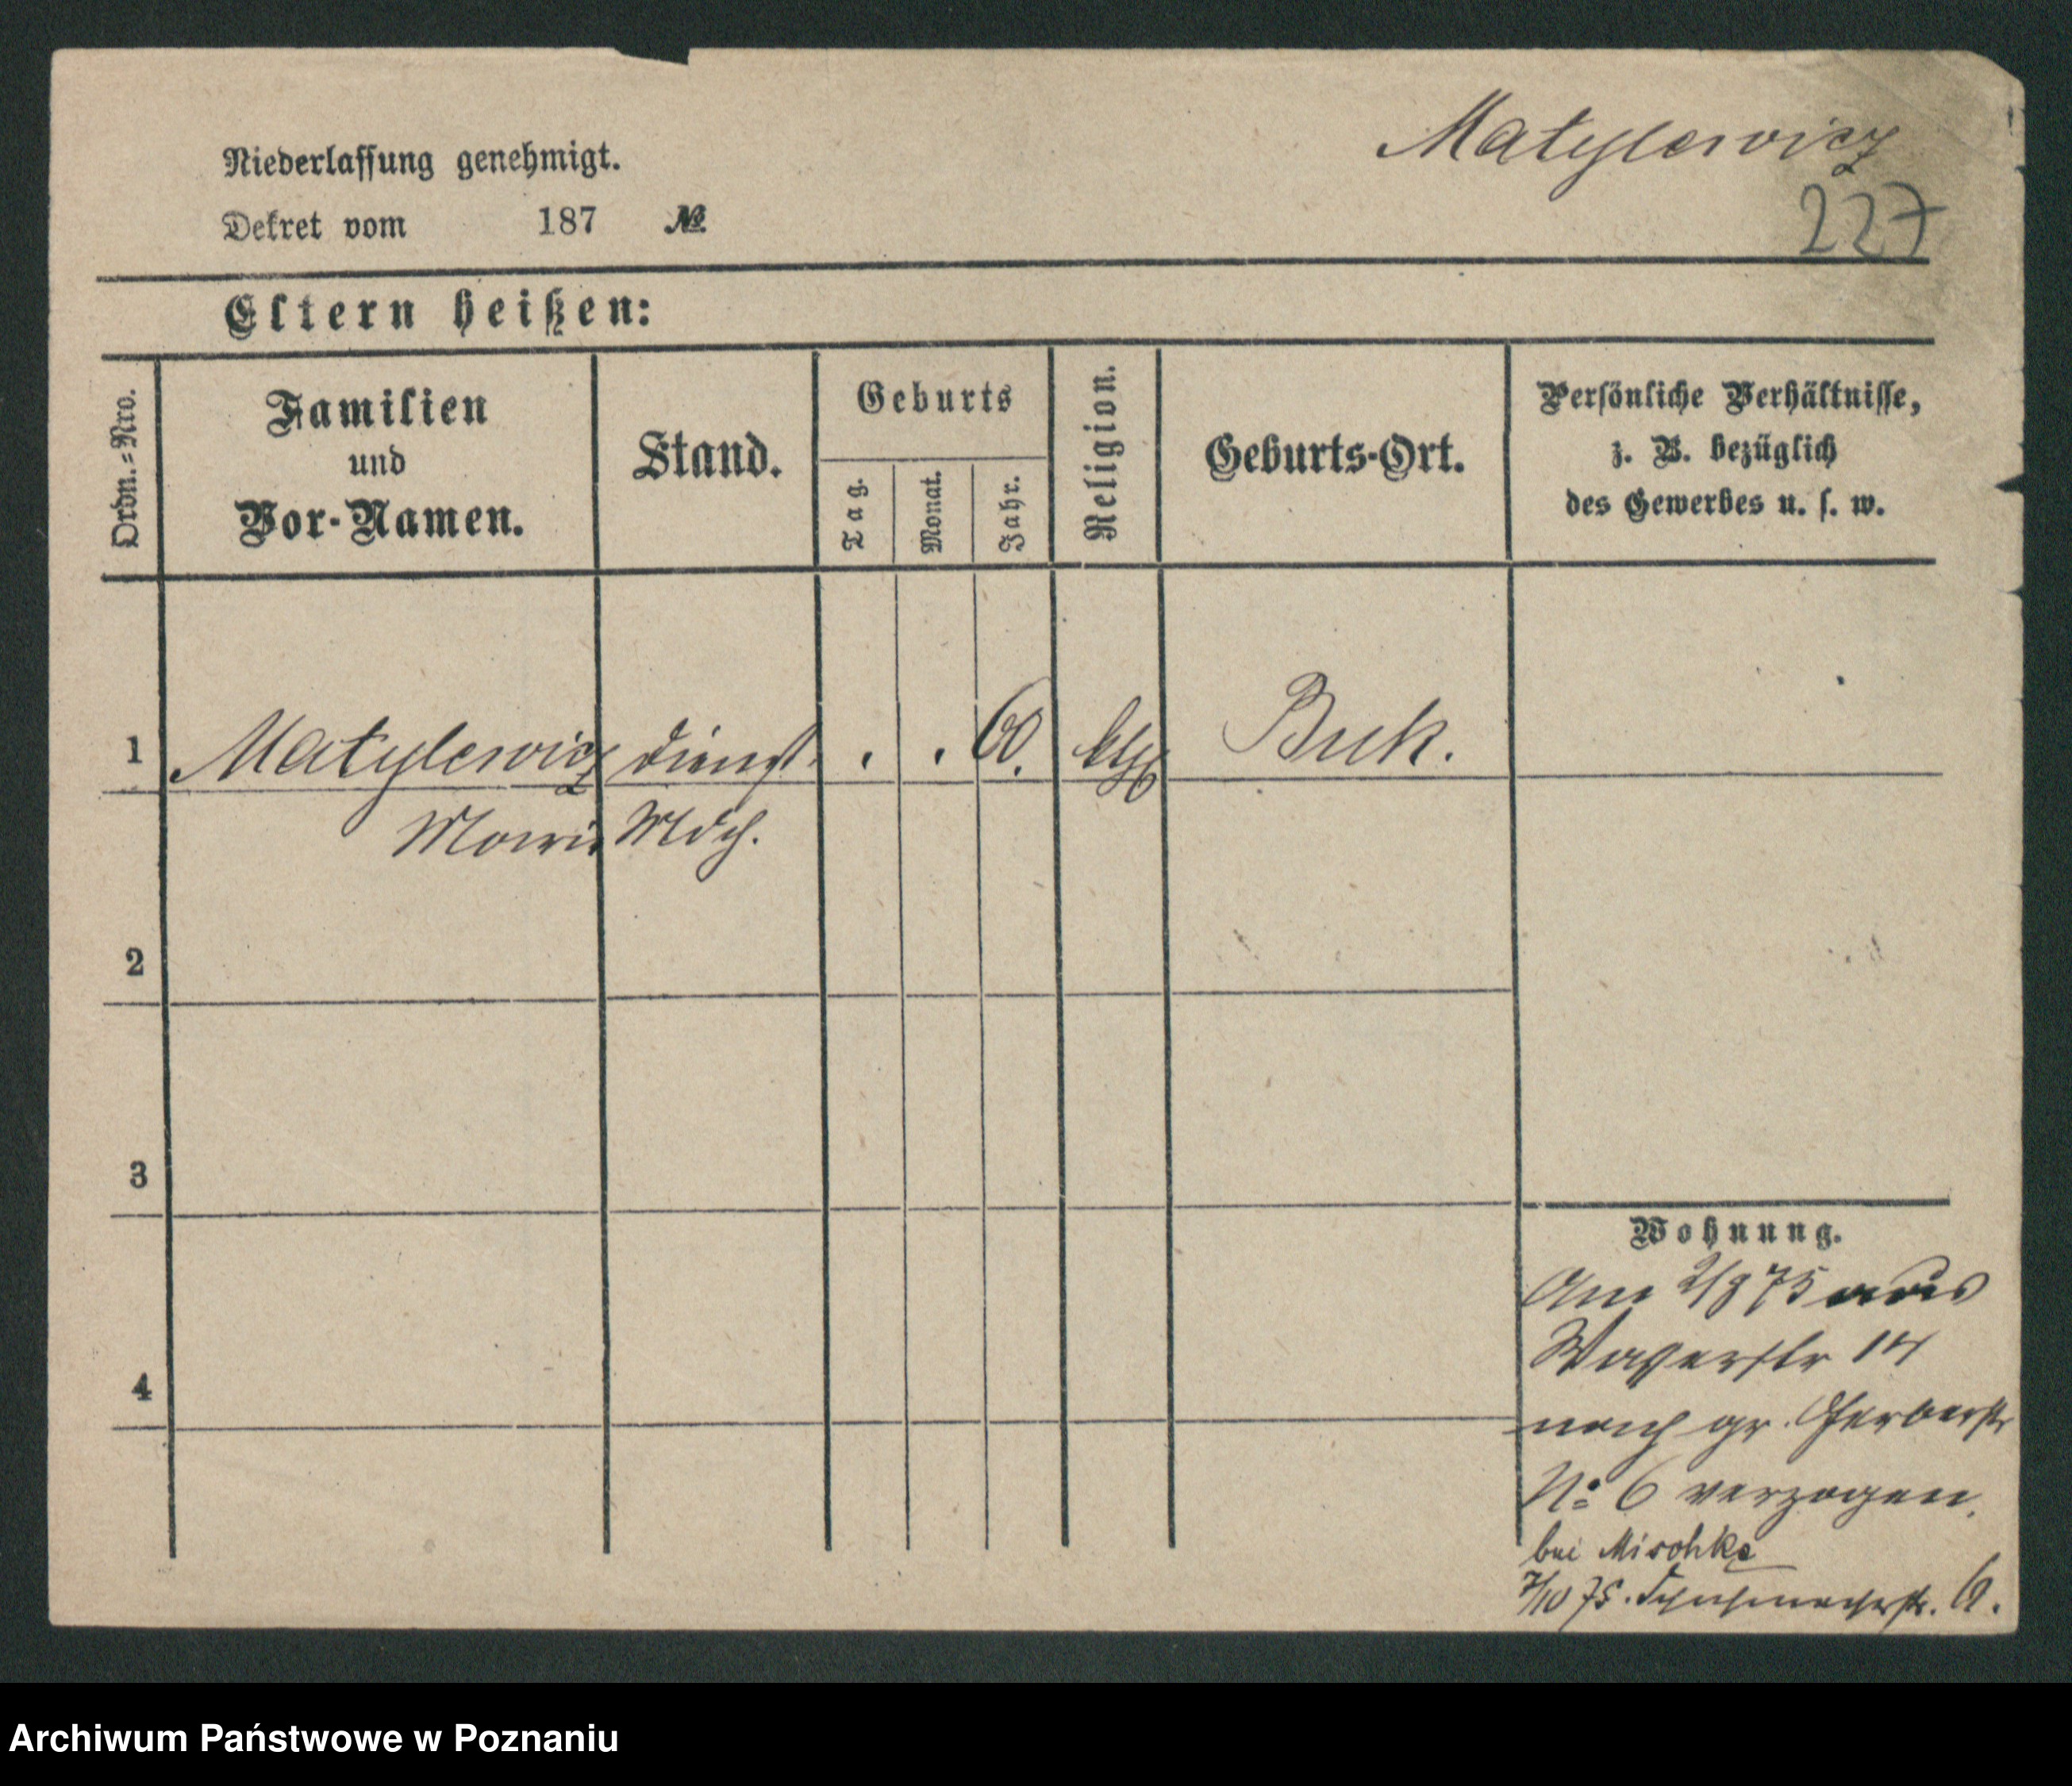 Matylewicz
227
Niederlassung genehmigt.
Dekret vom 187 №
Eltern heißen:
Ordn.=Nro.
Familien
und
Vor-Namen.
Stand.
Geburts
Tag.
Monat.
Jahr.
Religion.
Geburts-Ort.
Persönliche Verhältnisse,
z. B. bezüglich
des Gewerbes u. s. w.
1 Matylewicz dienst . . 60. kth Buk.
Marie Mdch.
2
3
4
Wohnung.
Am 2/8 75 aus
14
nach gr. Gerberstr
No 6 verzogen.
bei Mischke
7/10 75. Schuhmacherstr. 6.
Archiwum Państwowe w Poznaniu